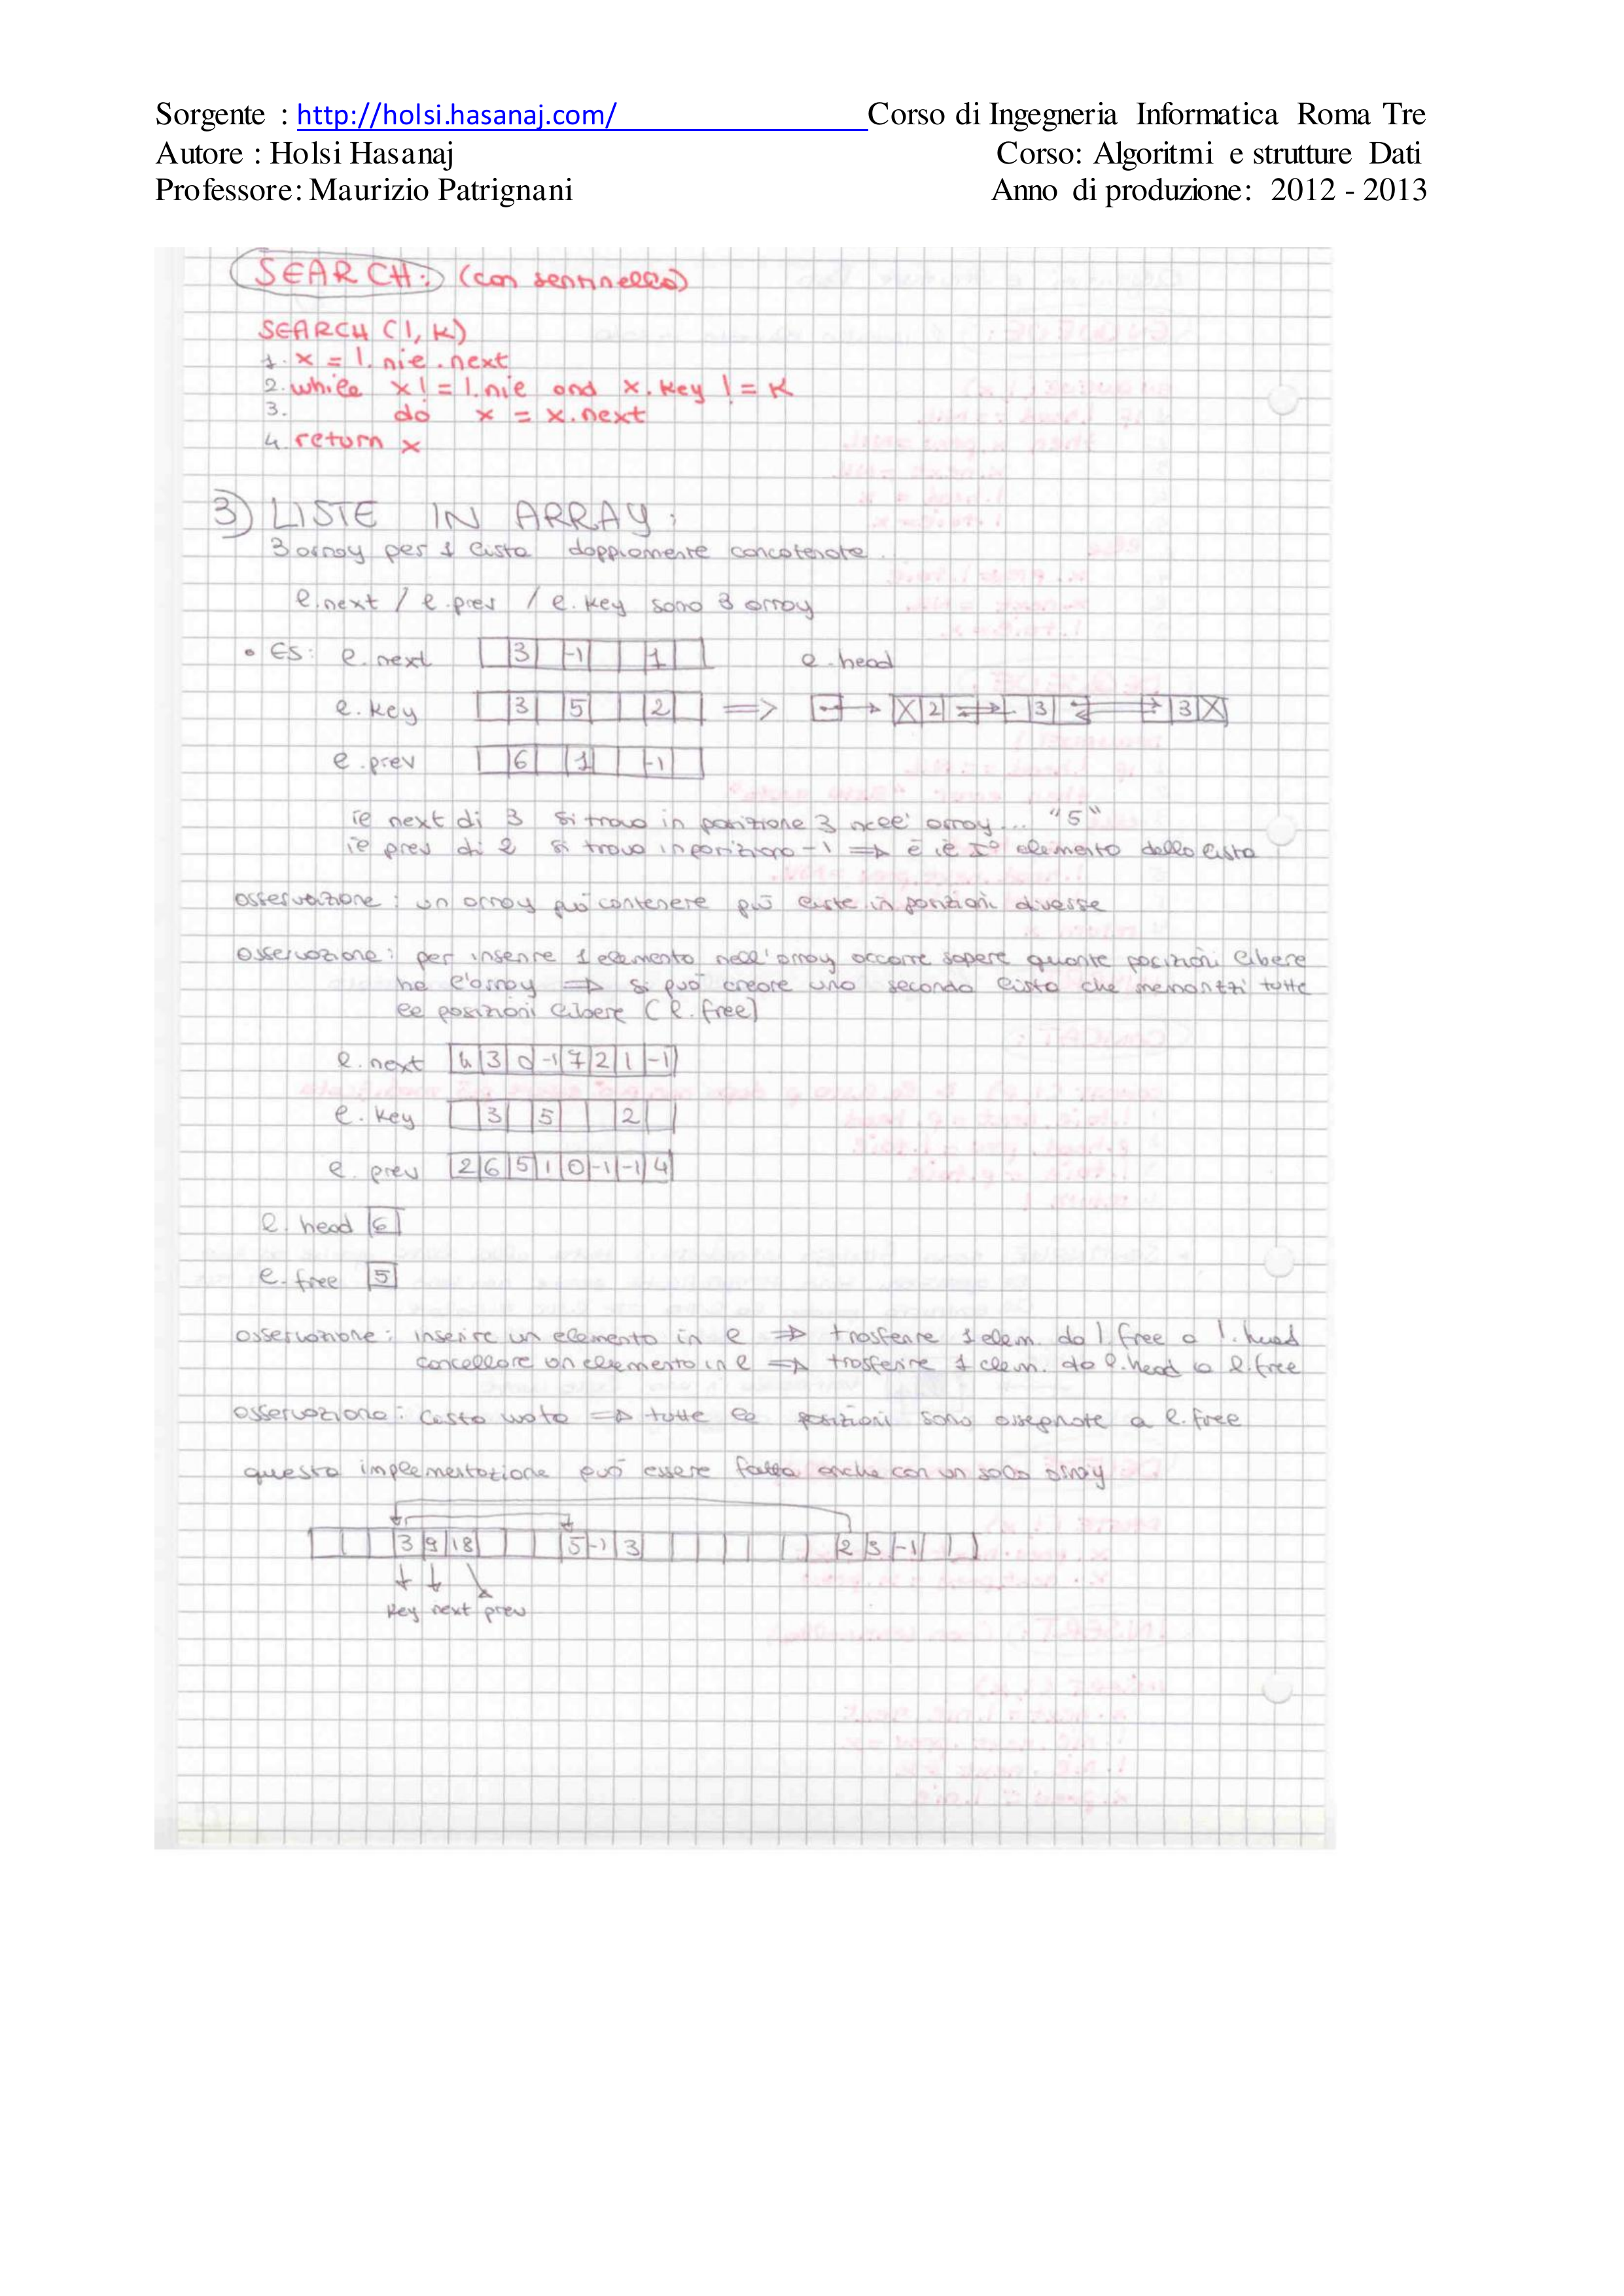 Sorgente : http://holsi.hasanaj.com/ Corso di Ingegneria Informatica Roma Tre
Autore : Holsi Hasanaj Corso: Algoritmi e strutture Dati
Professore: Maurizio Patrignani Anno di produzione: 2012 - 2013
SEARCH: (con sentinella)
SEARCH (l, K)
1. x = l.nil.next
2. while x != l.nil and x.key != K
3. do x = x.next
4. return x
3) LISTE IN ARRAY:
3 array per 1 lista doppiamente concatenata.
l.next / l.prev / l.key sono 3 array
• ES: l.next 3 -1 1 l.head
l.key 3 5 2 => X 2 3 3 X
l.prev 6 1 -1
il next di 3 si trova in posizione 3 nell'array... "5"
il prev di 2 si trova in posizione -1 => è il I° elemento della lista
osservazione: un array può contenere più liste in posizioni diverse
osservazione: per inserire 1 elemento nell'array occorre sapere quante posizioni libere
ha l'array => si può creare una seconda lista che memorizzi tutte
le posizioni libere (l.free)
l.next 4 3 0 -1 7 2 1 -1
l.key 3 5 2
l.prev 2 6 5 1 0 -1 -1 4
l.head 6
l.free 5
osservazione: inserire un elemento in l => trasferire 1 elem. da l.free a l.head
cancellare un elemento in l => trasferire 1 elem. da l.head a l.free
osservazione: lista vuota => tutte le posizioni sono assegnate a l.free
questa implementazione può essere fatta anche con un solo array
3 9 18 5 -1 3 2 3 -1
key next prev